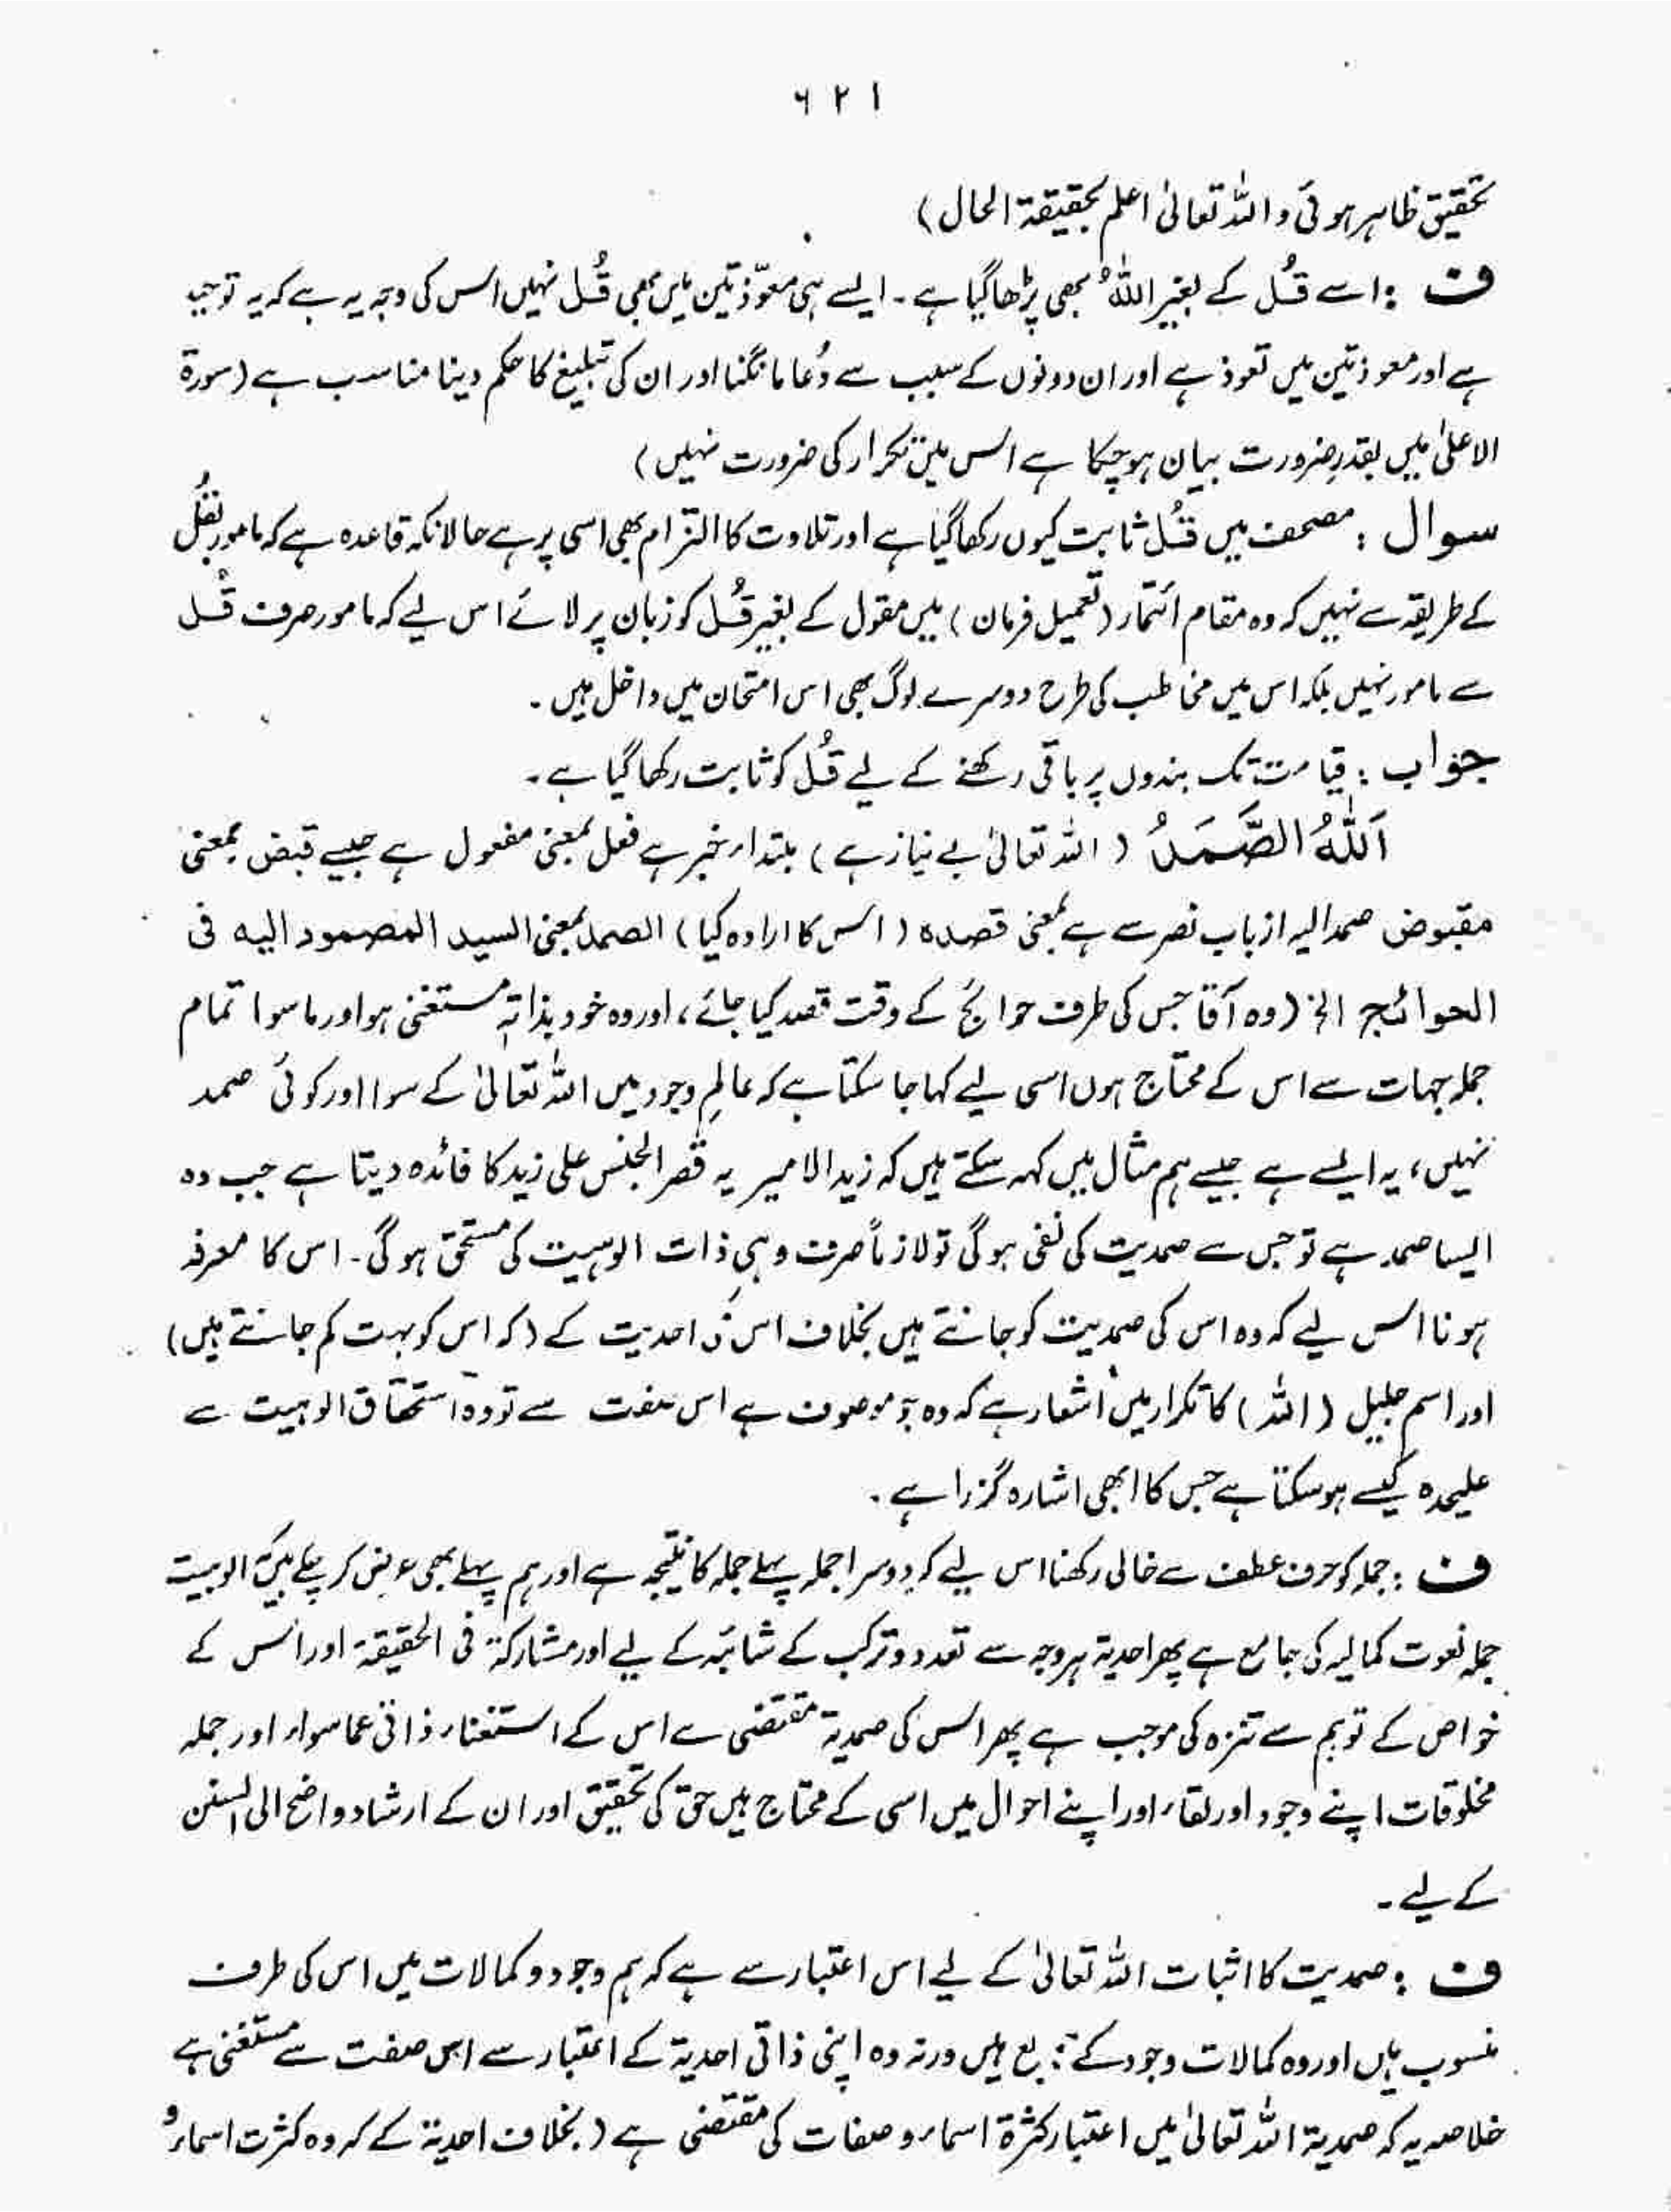 ۶۲۱
تحقیق ظاہر ہوئی واللہ تعالیٰ اعلم بحقیقۃ الحال)
ف : اسے قُل کے بغیر اللہُ بھی پڑھا گیا ہے۔ ایسے ہی معوّذتین میں بھی قُل نہیں اس کی وجہ یہ ہے کہ یہ توحید
ہے اور معوذتین میں تعوذ ہے اور ان دونوں کے سبب سے دُعا مانگنا اور ان کی تبلیغ کا حکم دینا مناسب ہے (سورۃ
الاعلیٰ میں بقدرِ ضرورت بیان ہوچکا ہے اس میں تکرار کی ضرورت نہیں)
سوال : مصحف میں قُل ثابت کیوں رکھا گیا ہے اور تلاوت کا التزام بھی اسی پر ہے حالانکہ قاعدہ ہے کہ مامور بقُل
کے طریقہ سے نہیں کہ وہ مقام ائتمار (تعمیل فرمان) میں مقول کے بغیر قُل کو زبان پر لائے اس لیے کہ مامور صرف قُل
سے مامور نہیں بلکہ اس میں مخاطب کی طرح دوسرے لوگ بھی اس امتحان میں داخل ہیں۔
جواب : قیامت تک بندوں پر باقی رکھنے کے لیے قُل کو ثابت رکھا گیا ہے۔
اَللّٰهُ الصَّمَدُ (اللہ تعالیٰ بے نیاز ہے) مبتداء خبر ہے فعل بمعنی مفعول ہے جیسے قبض بمعنی
مقبوض صمد الیہ از باب نصر سے ہے بمعنی قصدہ (اس کا ارادہ کیا) الصمد بمعنی السید المصمود الیہ فی
الحوائج الخ (وہ آقا جس کی طرف حوائج کے وقت قصد کیا جائے، اور وہ خود بذاتہٖ مستغنی ہو اور ماسوا تمام
جملہ جہات سے اس کے محتاج ہوں اسی لیے کہا جا سکتا ہے کہ عالمِ وجود میں اللہ تعالیٰ کے سوا اور کوئی صمد
نہیں، یہ ایسے ہے جیسے ہم مثال میں کہہ سکتے ہیں کہ زید الامیر یہ قصر الجنس علی زید کا فائدہ دیتا ہے جب وہ
ایسا صمد ہے تو جس سے صمدیت کی نفی ہوگی تو لازماً صرف وہی ذات الوہیت کی مستحق ہوگی۔ اس کا معرفہ
ہونا اس لیے کہ وہ اس کی صمدیت کو جانتے ہیں بخلاف اس کی احدیت کے (کہ اس کو بہت کم جانتے ہیں)
اور اسم جلیل (اللہ) کا تکرار میں اشعار ہے کہ وہ جو موصوف ہے اس صفت سے تو وہ استحقاق الوہیت سے
علیحدہ کیسے ہوسکتا ہے جس کا ابھی اشارہ گزرا ہے۔
ف : جملہ کو حرف عطف سے خالی رکھنا اس لیے کہ دوسرا جملہ پہلے جملہ کا نتیجہ ہے اور ہم پہلے بھی عرض کر چکے ہیں کہ الوہیت
جملہ نعوت کمالیہ کی جامع ہے پھر احدیۃ ہر وجہ سے تعدد و ترکب کے شائبہ کے لیے اور مشارکۃ فی الحقیقۃ اور اس کے
خواص کے توہم سے تنزہ کی موجب ہے پھر اس کی صمدیۃ مقتضی سے اس کے استغناء ذاتی عما سواہ اور جملہ
مخلوقات اپنے وجود اور بقاء اور اپنے احوال میں اسی کے محتاج ہیں حق کی تحقیق اور ان کے ارشاد واضح الی السنن
کے لیے۔
ف : صمدیت کا اثبات اللہ تعالیٰ کے لیے اس اعتبار سے ہے کہ ہم وجود و کمالات میں اس کی طرف
منسوب ہیں اور وہ کمالات وجود کے تابع ہیں ورنہ وہ اپنی ذاتی احدیۃ کے اعتبار سے اس صفت سے مستغنی ہے
خلاصہ یہ کہ صمدیۃ اللہ تعالیٰ میں اعتبار کثرۃ اسماء و صفات کی مقتضی ہے (بخلاف احدیۃ کے کہ وہ کثرت اسماء و